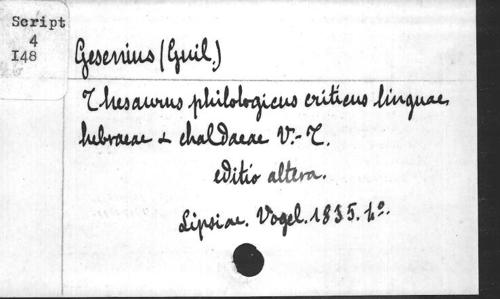 Script
4
I48
Gesenius (Guil.)
Thesaurus philologicus criticus linguae
hebraeae & chaldaeae V.-T.
editio altera.
Lipsiae. Vogel. 1835. 4o.